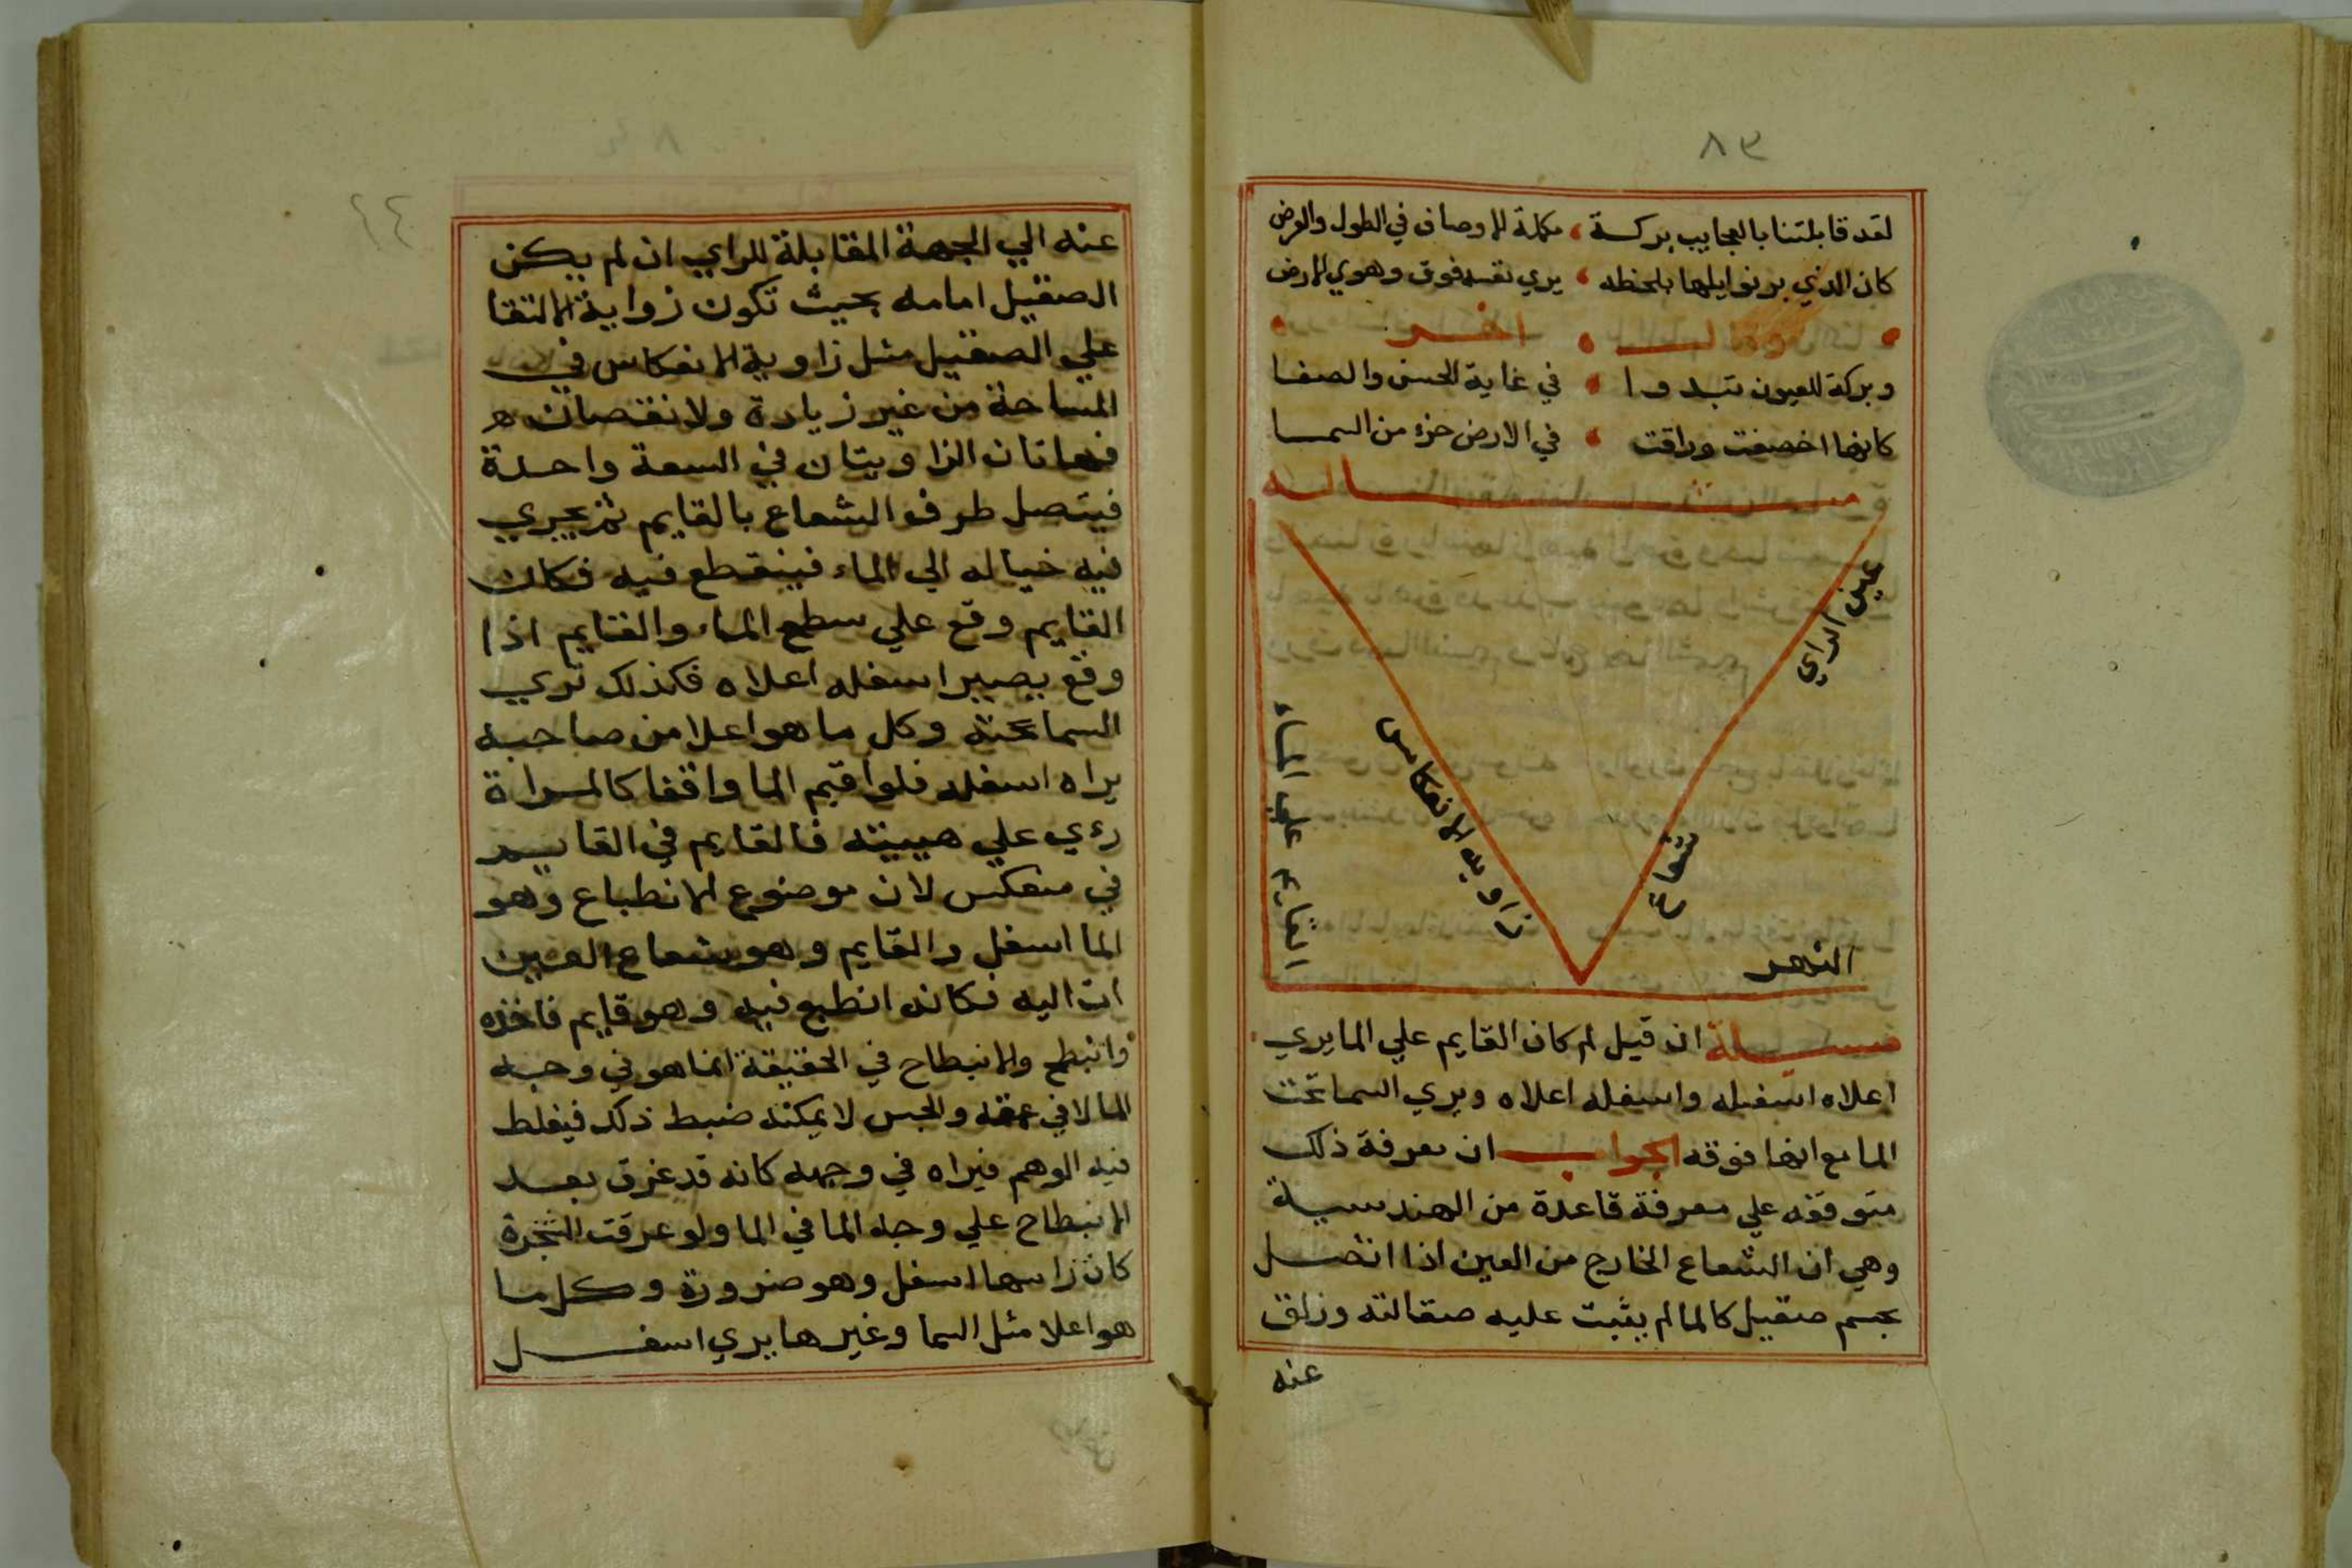 ٨٣
لقد قابلتنا بالعجايب بركسة ، مكملة للاوصاف في الطول والعرض
كان الذي يرنوا يلها بلحظه ، يري نفسه فوق وهوي للارض
اخر
وبركة للعيون تبدوا ، في غاية الحسن والصفا
كانها اخصفت وراقت ، في الارض جزء من السما
مثاله
عين الراي
شعاع
زاويه الانعكاس
القايم علي الماء
النهر
مسيلة ان قيل لم كان القايم علي الما يري
اعلاه اسفله واسفله اعلاه ويري السما تحت
الما مع انها فوقه الجواب ان معرفة ذلك
متوقفه علي معرفة قاعدة من الهندسية
وهي ان الشعاع الخارج من العين اذا اتصل
بجسم صقيل كالما لم يثبت عليه صقالته وزلق
عنه
عنه الي الجهة المقابلة للراي ان لم يكن
الصقيل امامه بحيث تكون زواية الالتقا
علي الصقيل مثل زاوية الانعكاس في
المساحة من غير زيادة ولا نقصان
فهاتان الزاويتان في السعة واحدة
فيتصل طرف الشعاع بالقايم ثم يجري
فيه خياله الي الماء فينقطع فيه فكان
القايم وقع علي سطح الماء والقايم اذا
وقع يصير اسفله اعلاه فكذلك تري
السما تحته وكل ما هو اعلا من صاحبه
يراه اسفله فلو اقيم الما واقفا كالمراة
رءي علي هييته فالقايم في القايم
في منعكس لان موضوع الانطباع وهو
الما اسفل والقايم وهو شعاع العين
ات اليه فكانه انطبع فيه وهو قايم فاخذه
وانبطح والانبطاح في الحقيقة انما هو في وجه
الما لا في عمقه والحس لا يمكنه ضبط ذلك فيغلط
فيه الوهم فيراه في وجهه كانه قد غرق بعد
الانبطاح علي وجه الما في الما ولو عرقت الشجرة
كان راسها اسفل وهو ضرورة وكل ما
هو اعلا مثل السما وغيرها يري اسفل